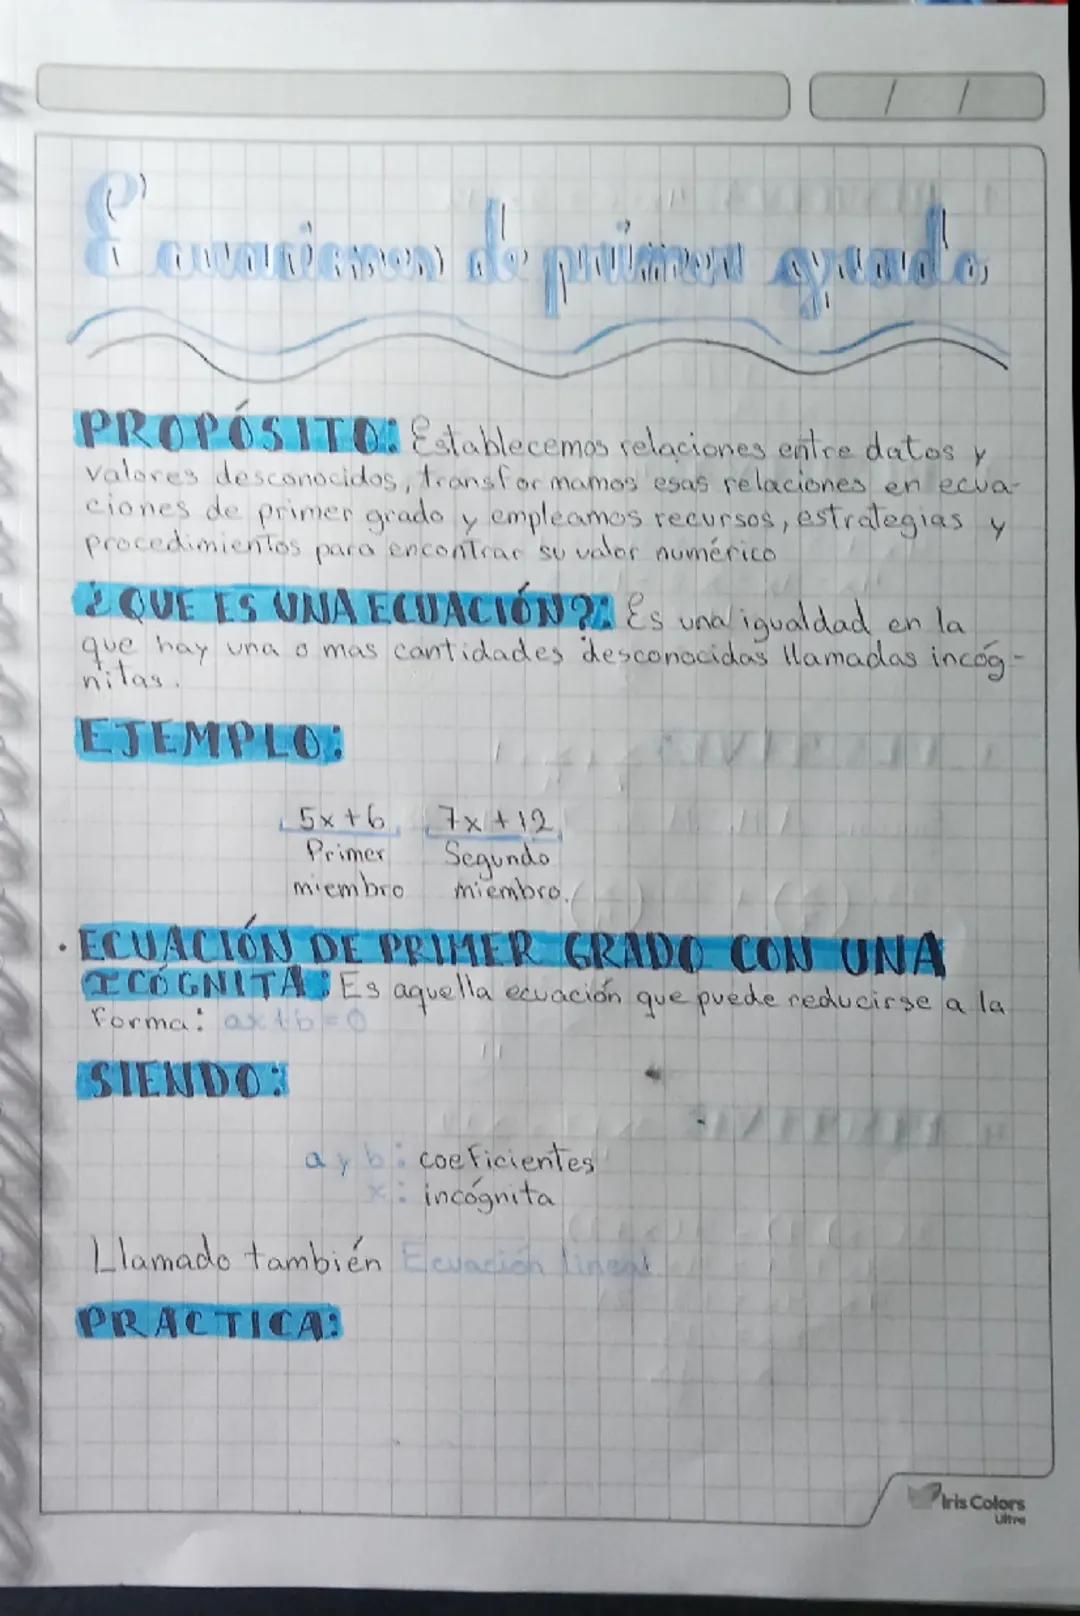 Ecuaciones de primer grado
PROPÓSITO: Establecemos relaciones entre datos y
valores desconocidos, transformamos esas relaciones en ecua-
ciones de primer grado y empleamos recursos, estrategias y
procedimientos para encontrar su valor numérico
¿QUE ES UNA ECUACIÓN?: Es una igualdad en la
que hay una o mas cantidades desconocidas llamadas incóg-
nitas.
EJEMPLO:
5x+6 7x+12
Primer Segundo
miembro miembro.
· ECUACIÓN DE PRIMER GRADO CON UNA
ICÓGNITA: Es aquella ecuación que puede reducirse a la
forma: ax+b=0
SIENDO:
a y b: coeficientes
x: incógnita
Llamado también Ecuación lineal
PRACTICA:
Iris Colors
Ultra